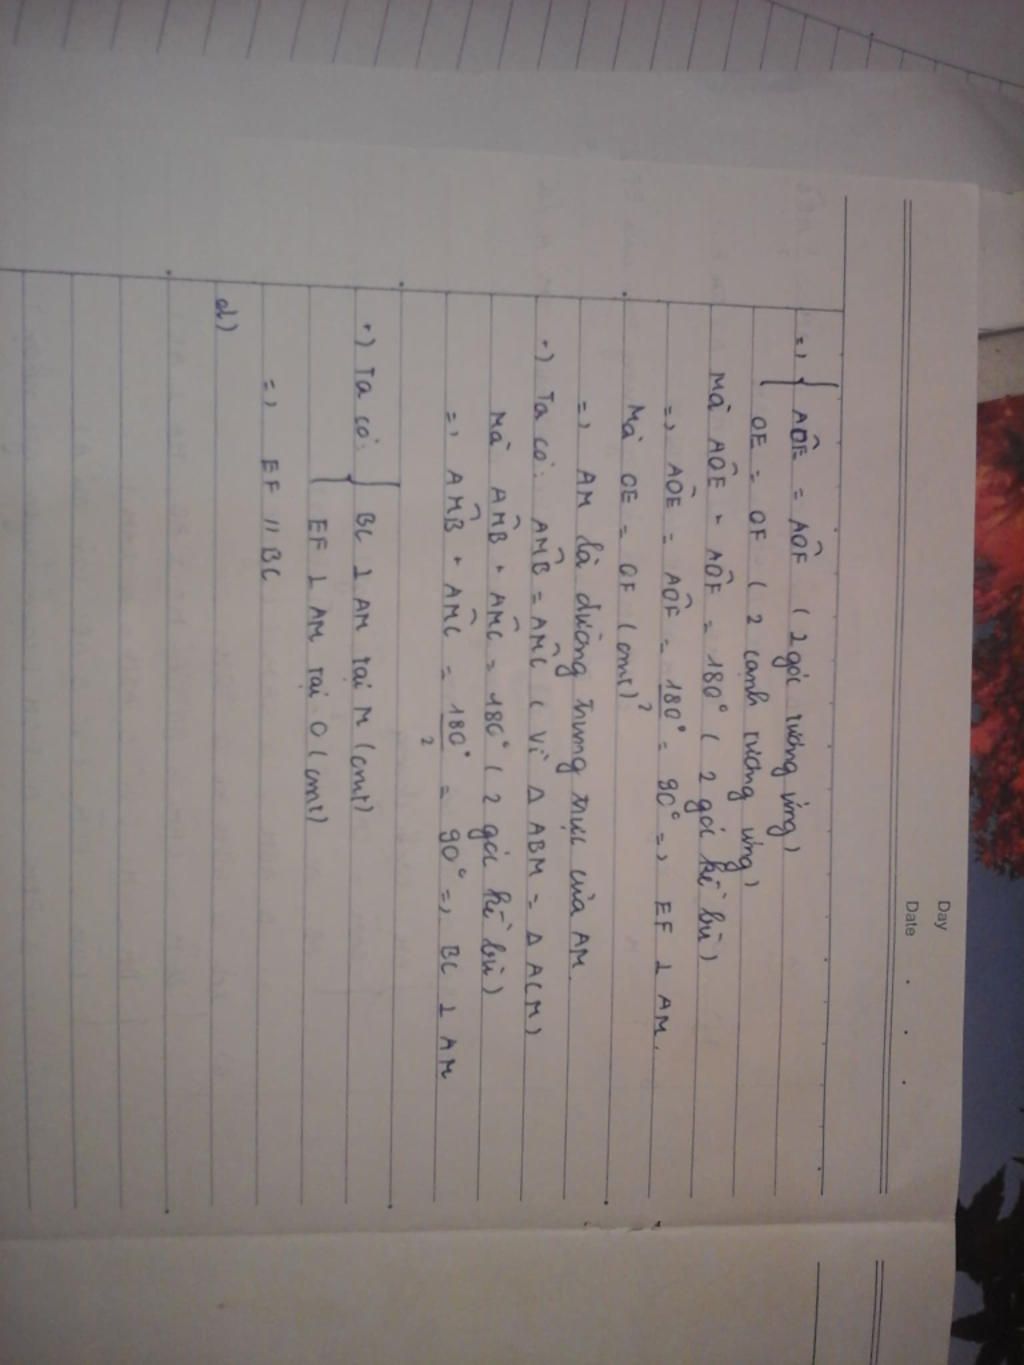 Day
Date . . .
=> { AÔE = AÔF ( 2 góc tương ứng)
OE = OF ( 2 cạnh tương ứng)
Mà AÔE + AÔF = 180° ( 2 góc kề bù)
=> AÔE = AÔF = 180°/2 = 90° => EF ⊥ AM.
Mà OE = OF (cmt)
=> AM là đường trung trực của AM.
•) Ta có: AM̂B = AM̂C ( Vì Δ ABM = Δ ACM)
Mà AM̂B + AM̂C = 180° ( 2 góc kề bù)
=> AM̂B + AM̂C = 180°/2 = 90° => BC ⊥ AM
•) Ta có: { BC ⊥ AM tại M (cmt)
EF ⊥ AM tại O (cmt)
=> EF // BC
d)